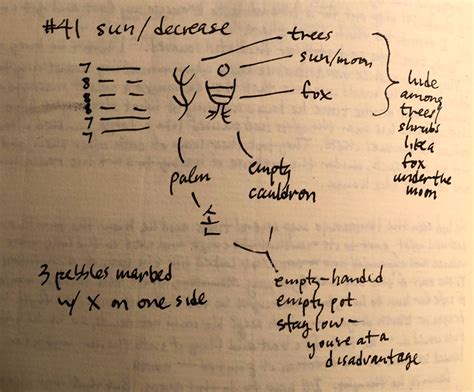 #41 sun/decrease
trees
sun/moon
fox
7
8
8
8
7
7
hide
among
trees/
shrubs
like a
fox
under the
moon
palm
empty
cauldron
3 pebbles marked
w/ X on one side
empty-handed
empty pot
stay low—
you're at a
disadvantage